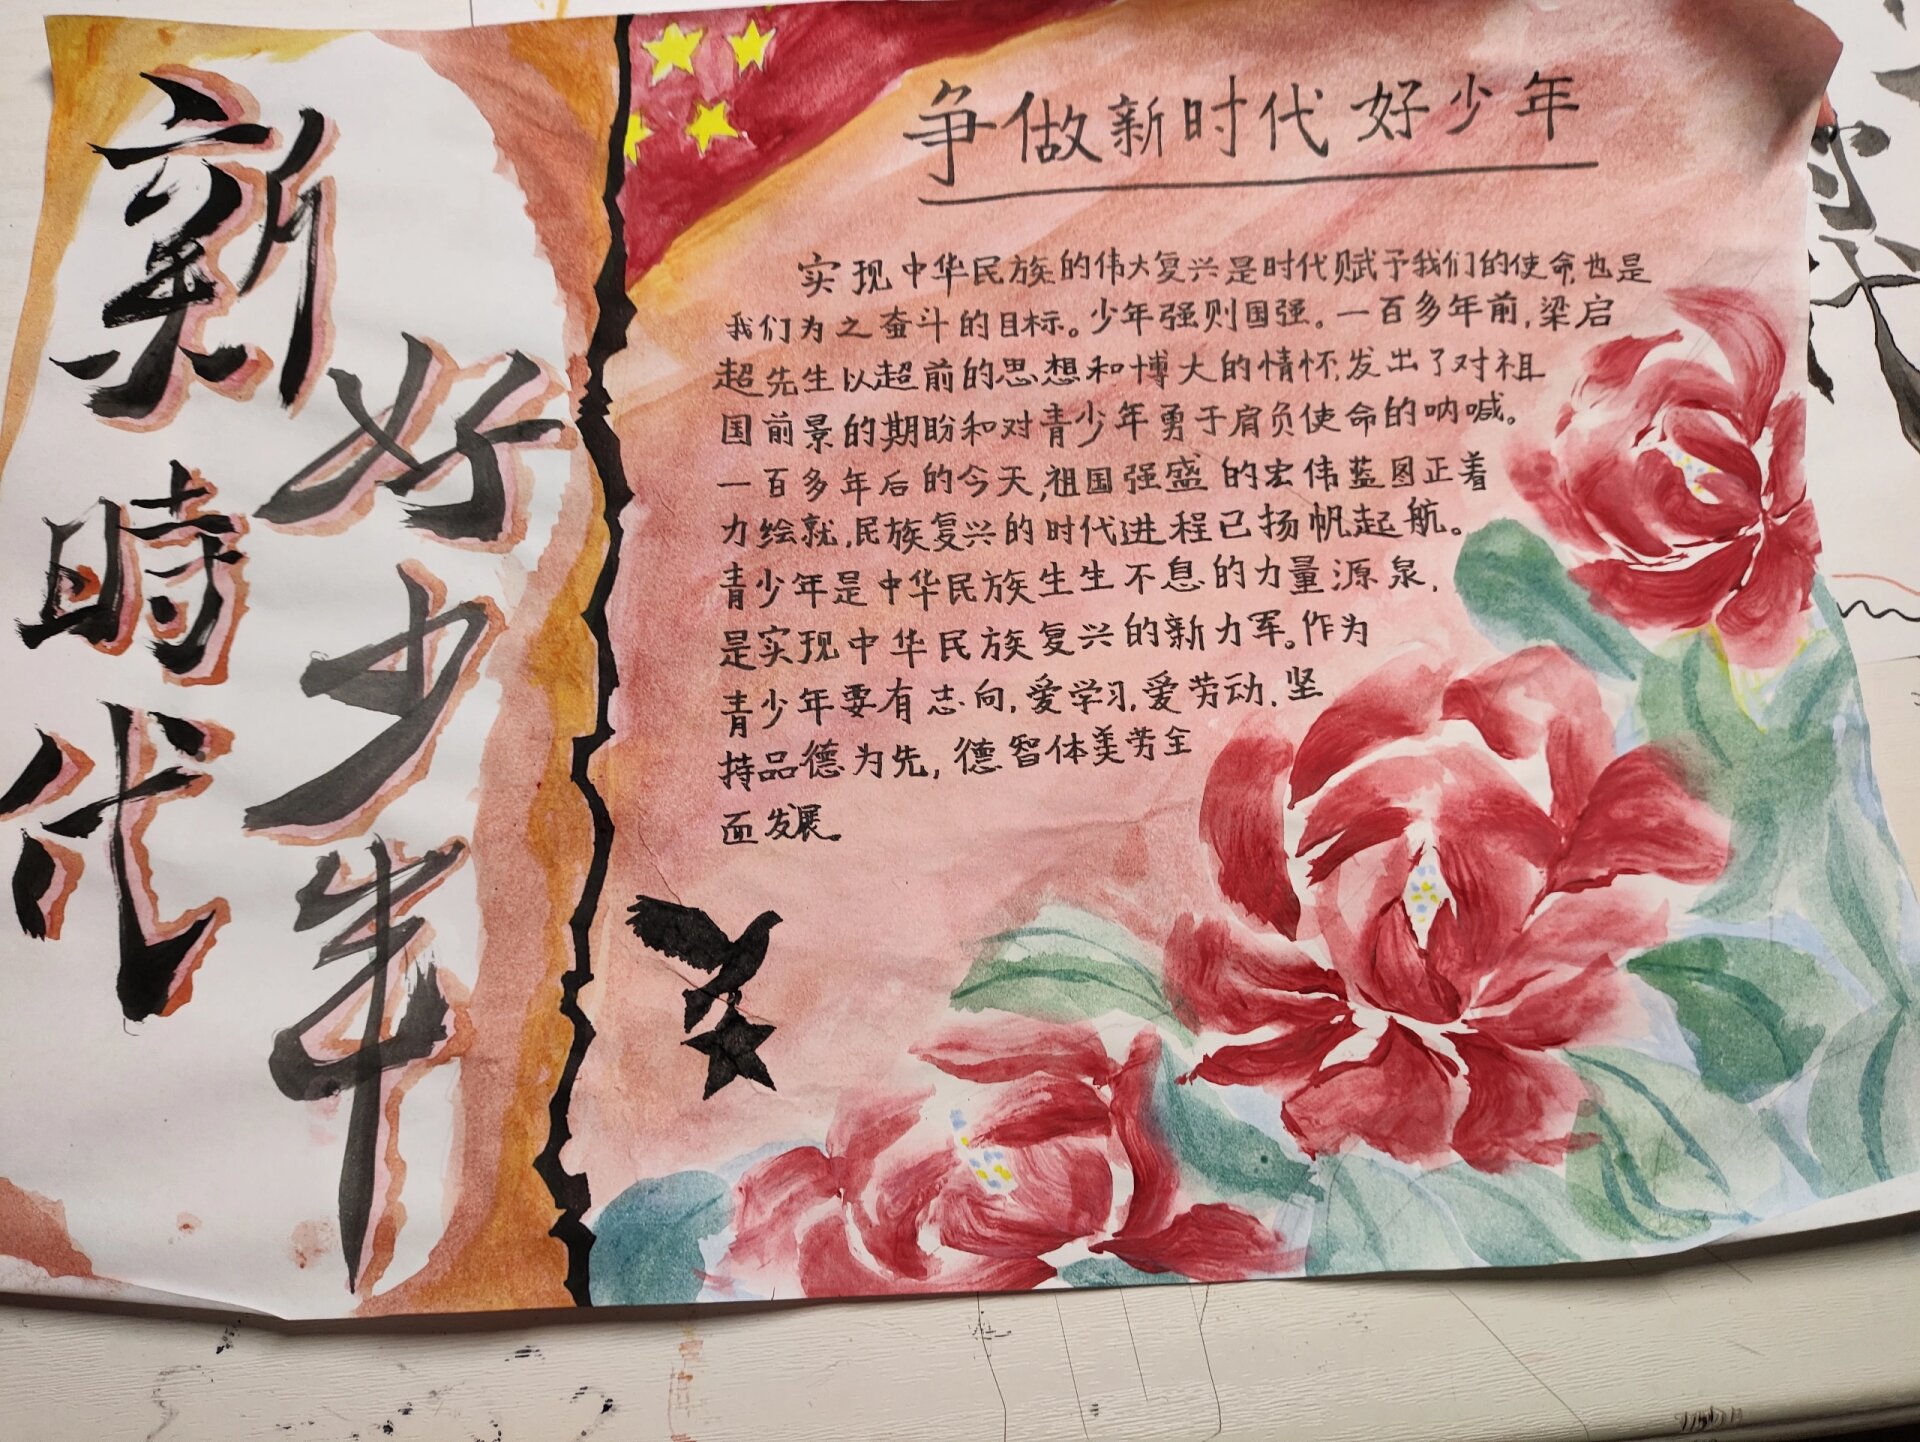 新時代
好少年
争做新时代好少年
实现中华民族的伟大复兴是时代赋予我们的使命,也是
我们为之奋斗的目标。少年强则国强。一百多年前,梁启
超先生以超前的思想和博大的情怀,发出了对祖
国前景的期盼和对青少年勇于肩负使命的呐喊。
一百多年后的今天,祖国强盛的宏伟蓝图正着
力绘就,民族复兴的时代进程已扬帆起航。
青少年是中华民族生生不息的力量源泉,
是实现中华民族复兴的新力军。作为
青少年要有志向,爱学习,爱劳动,坚
持品德为先,德智体美劳全
面发展。